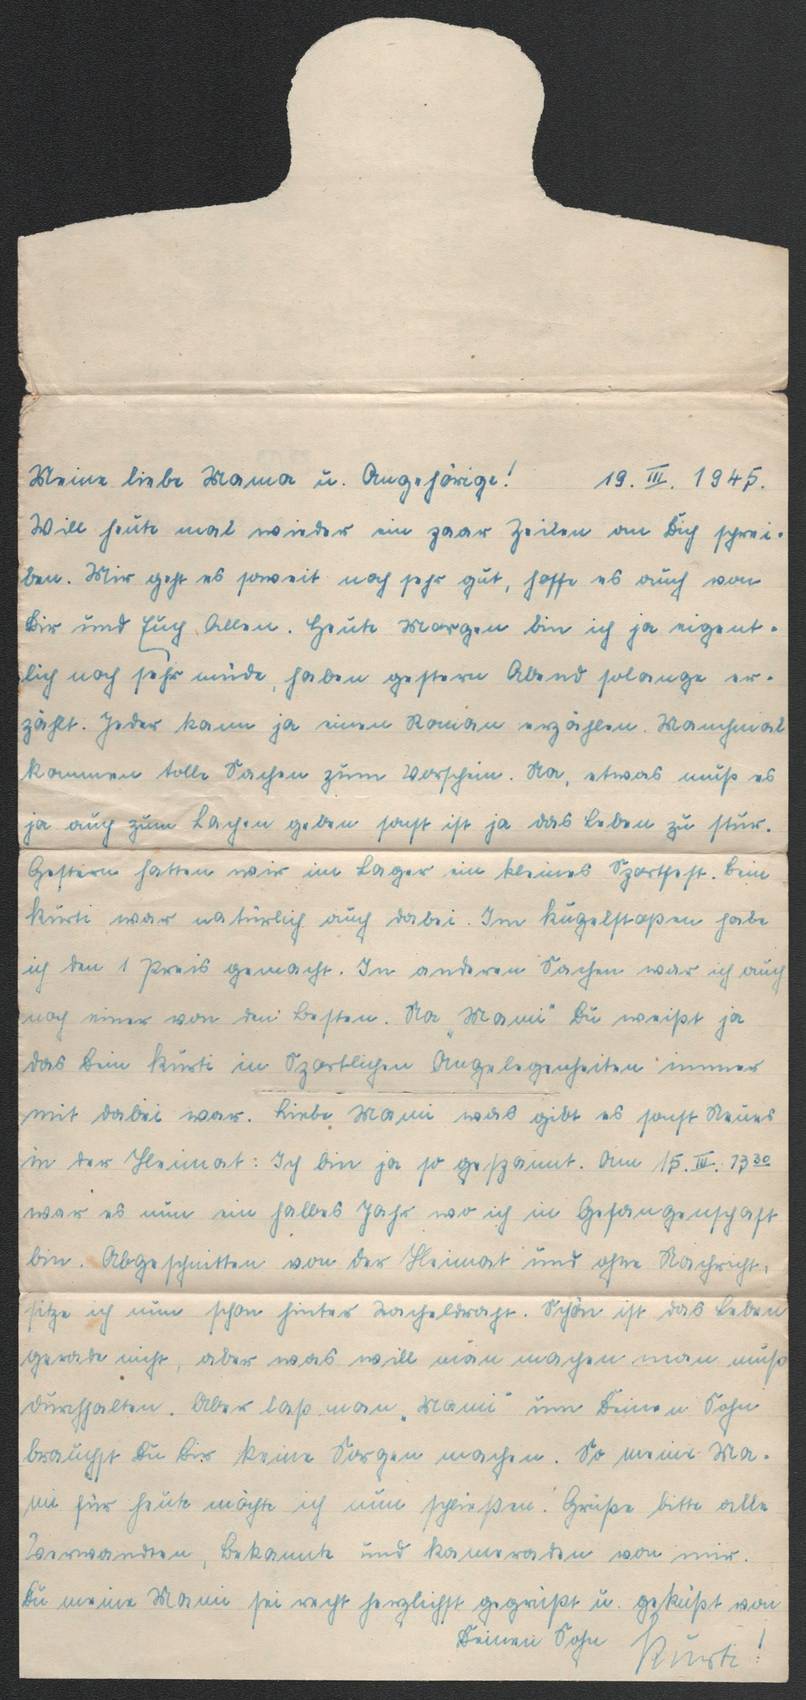 Meine liebe Mama u. Angehörige! 19. III. 1945.
Will heute mal wieder ein paar Zeilen an Dich schrei-
ben. Mir geht es soweit noch sehr gut, hoffe es auch von
Dir und Euch Allen. Heute Morgen bin ich ja eigent-
lich noch sehr müde, haben gestern Abend solange er-
zählt. Jeder kann ja einen Roman erzählen. Manchmal
kommen tolle Sachen zum Vorschein. Na, etwas muß es
ja auch zum Lachen geben sonst ist ja das Leben zu stur.
Gestern hatten wir im Lager ein kleines Sportfest. Dein
Kurti war natürlich auch dabei. Im Kugelstoßen habe
ich den 1 Preis gemacht. In anderen Sachen war ich auch
noch einer von den Besten. Na „Mami" Du weißt ja
das Dein Kurti in Sportlichen Angelegenheiten immer
mit dabei war. Liebe Mami was gibt es sonst Neues
in der Heimat: Ich bin ja so gespannt. Am 15. III. 13 30
war es nun ein halbes Jahr wo ich in Gefangenschaft
bin. Abgeschnitten von der Heimat und ohne Nachricht,
sitze ich nun schon hinter Stacheldraht. Schön ist das Leben
gerade nicht, aber was will man machen man muß
durchhalten. Aber laß man „Mami" um Deinen Sohn
brauchst Du Dir keine Sorgen machen. So meine Ma-
mi für heute möchte ich nun schließen. Grüße bitte alle
Verwandten, Bekannte und Kameraden von mir.
Du meine Mami sei recht herzlichst gegrüßt u. geküßt von
Deinen Sohn Kurti!